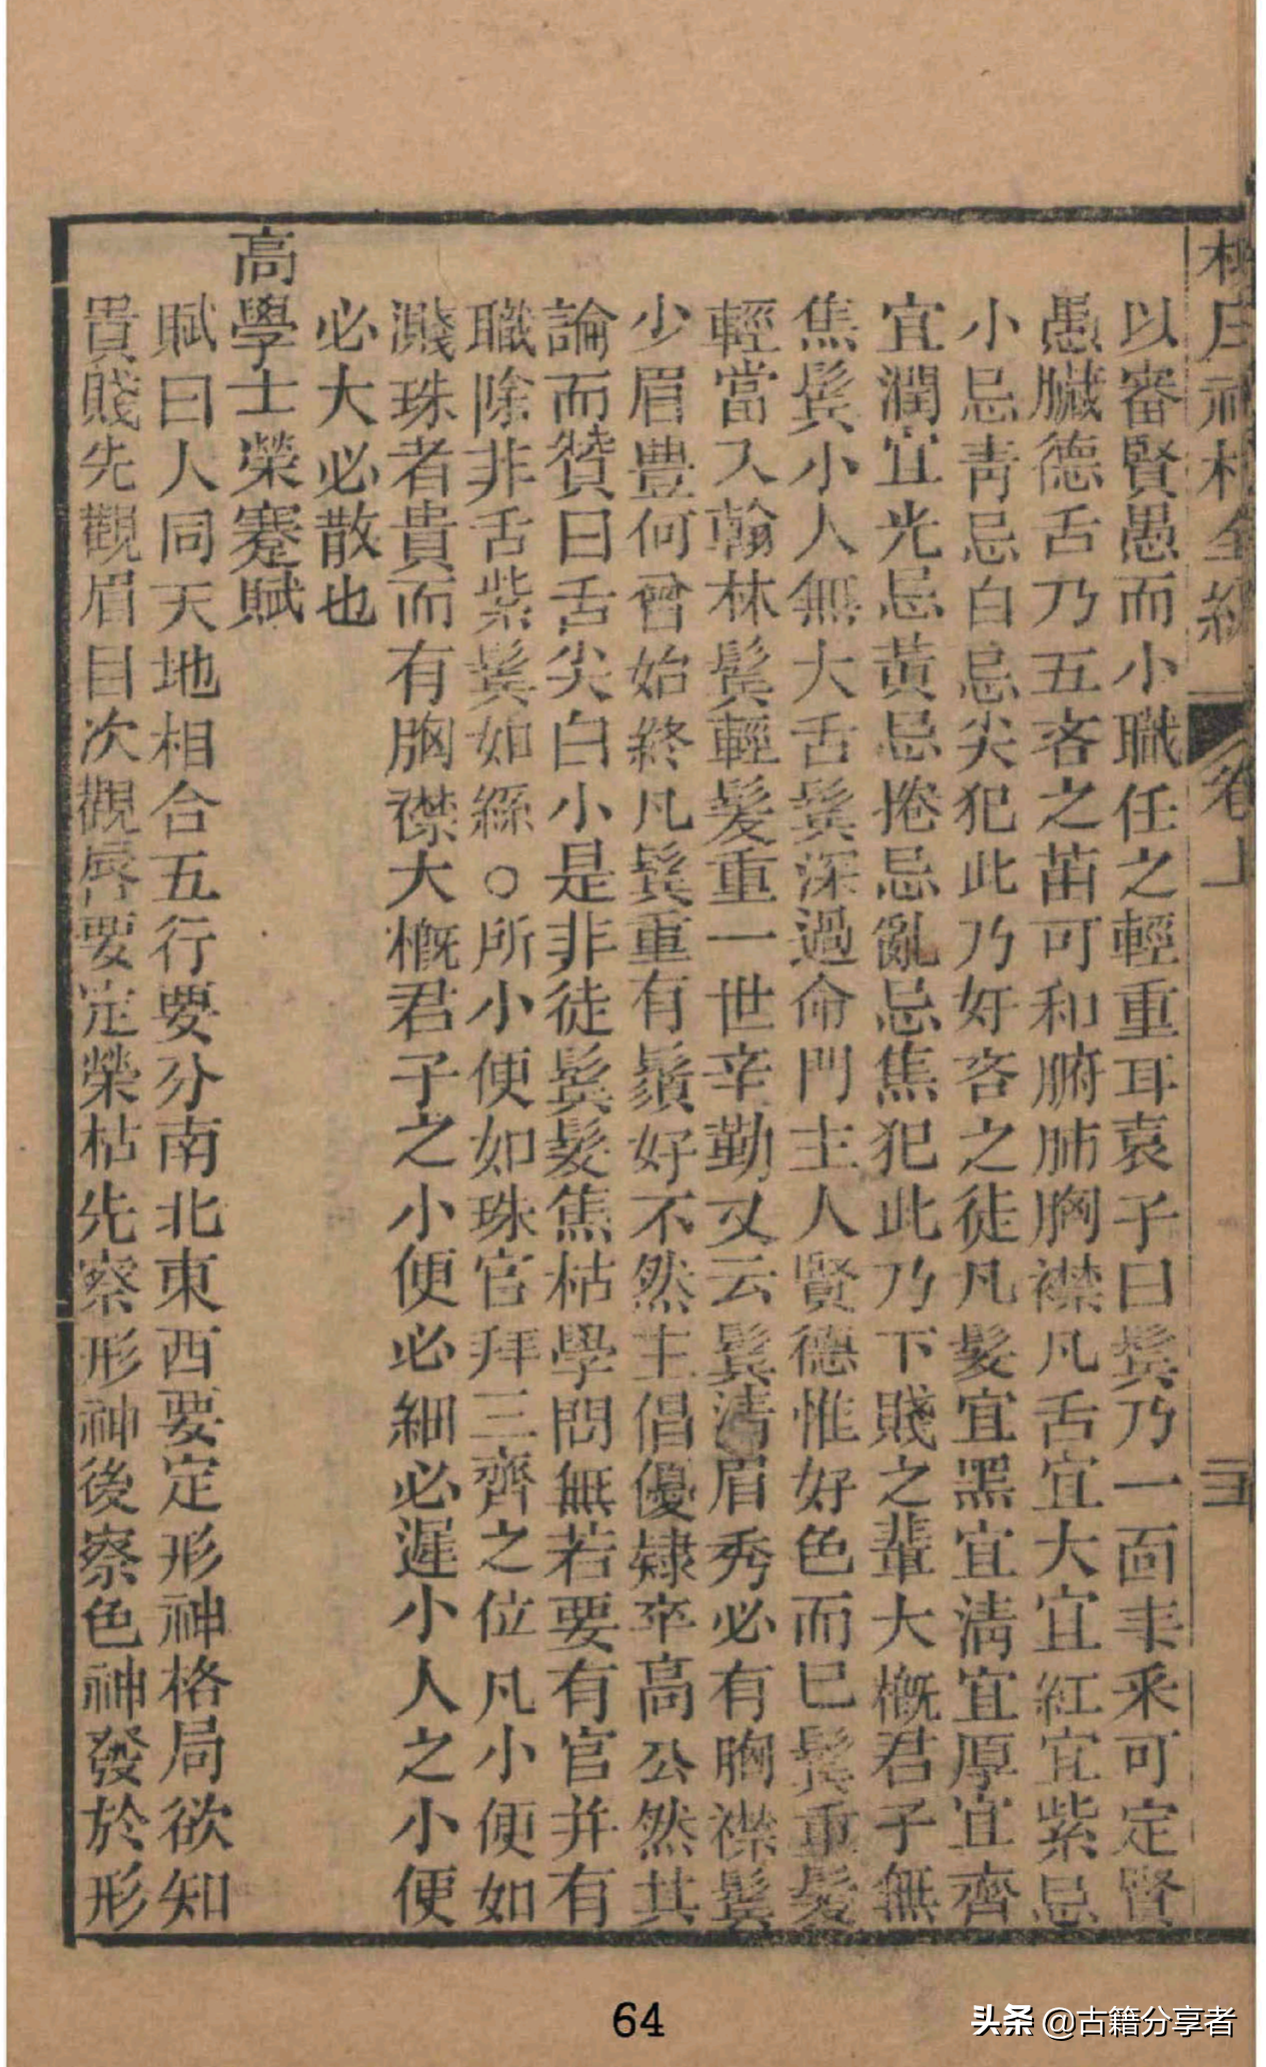 柳庄神相全編 卷上
以審賢愚而小職任之輕重耳袁子曰鬓乃一面丰采可定賢
愚臟德舌乃五吝之苗可和腑肺胸襟凡舌宜大宜紅宜紫忌
小忌青忌白忌尖犯此乃奸吝之徒凡髮宜黑宜清宜厚宜齊
宜潤宜光忌黃忌捲忌亂忌焦犯此乃下賤之輩大概君子無
焦鬓小人無大舌鬓深過命門主人賢德惟好色而已鬓重髮
輕當入翰林鬓輕髮重一世辛勤又云鬓清眉秀必有胸襟鬓
少眉豊何曾始終凡鬓重有鬚好不然主倡優隸卒高公然其
論而贊曰舌尖白小是非徒鬓髮焦枯學問無若要有官并有
職除非舌紫鬓如絲○所小便如珠官拜三齊之位凡小便如
濺珠者貴而有胸襟大概君子之小便必細必遲小人之小便
必大必散也
高學士榮蹇賦
賦曰人同天地相合五行要分南北東西要定形神格局欲知
貴賤先觀眉目次觀唇要定榮枯先察形神後察色神發於形
64
头条 @古籍分享者